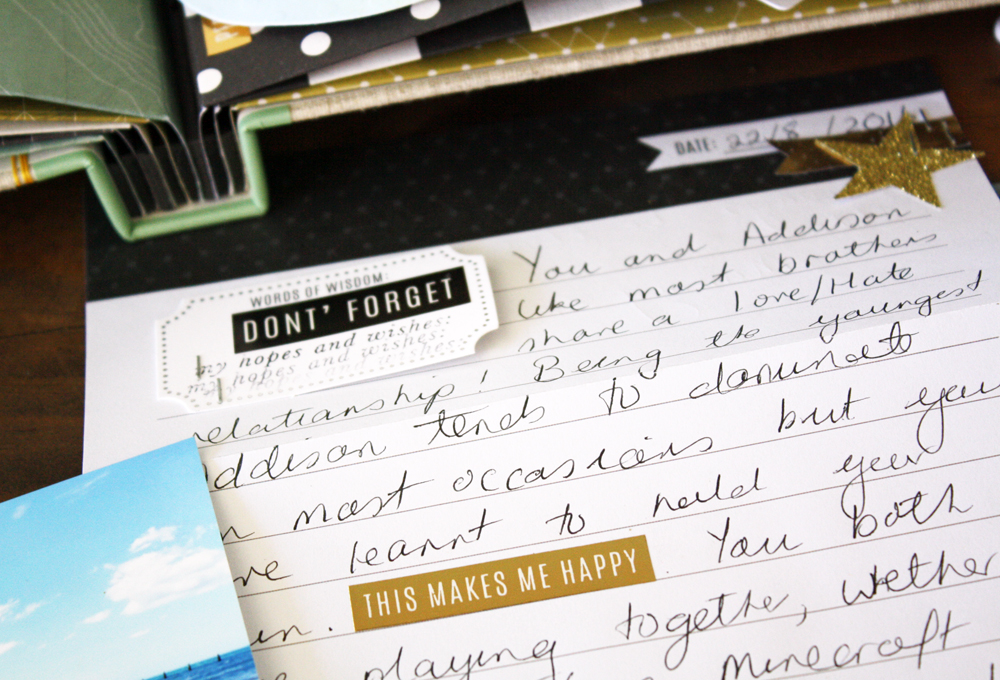 DATE: 22/8 /2014
WORDS OF WISDOM:
DONT' FORGET
my hopes and wishes:
my hopes and wishes:
You and Addison
like most brothers
share a love/Hate
relationship! Being the youngest
ddison tends to dominate
n most occasions but you
ve learnt to hold your
wn. THIS MAKES ME HAPPY You both
playing together, whether
Minecraft